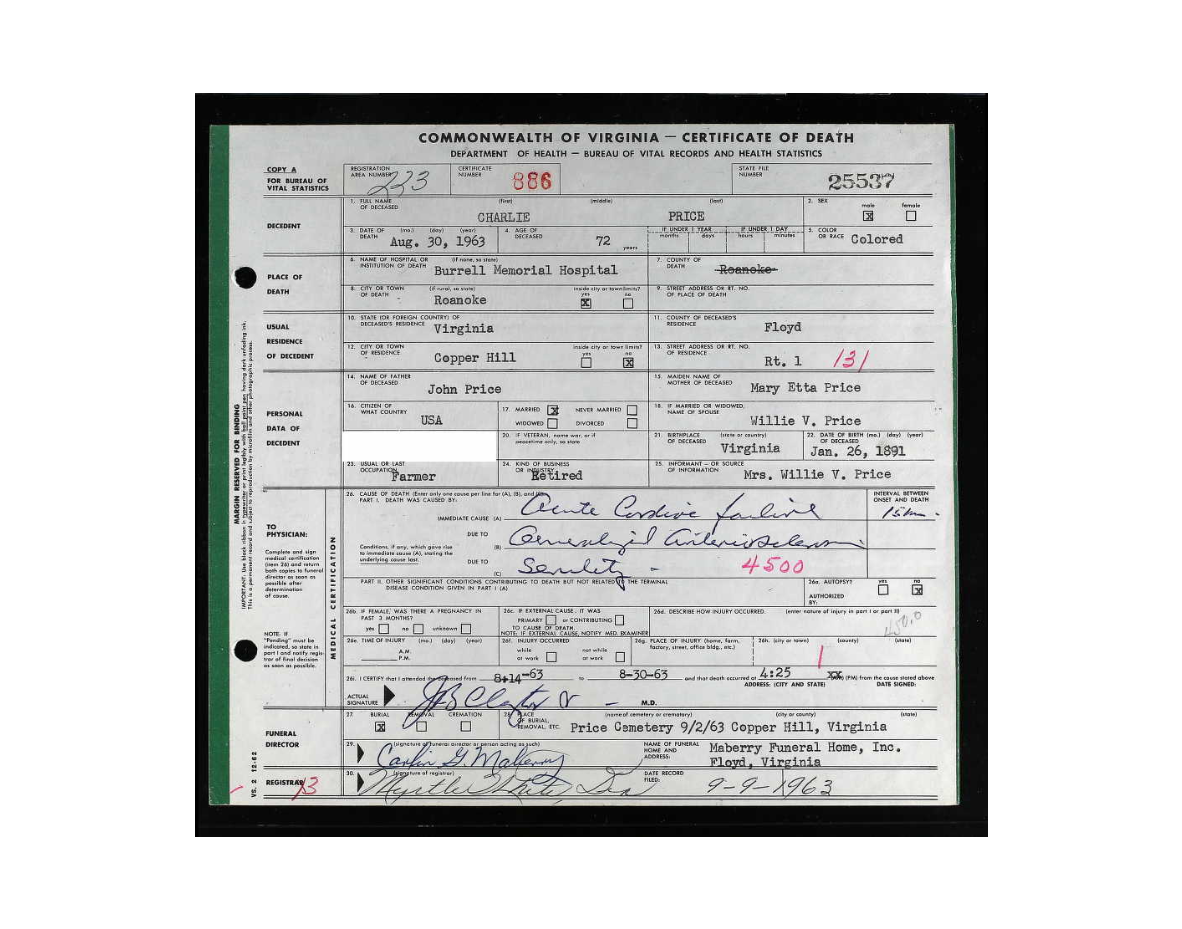 COMMONWEALTH OF VIRGINIA — CERTIFICATE OF DEATH
DEPARTMENT OF HEALTH — BUREAU OF VITAL RECORDS AND HEALTH STATISTICS
COPY A
FOR BUREAU OF VITAL STATISTICS
REGISTRATION AREA NUMBER 223
CERTIFICATE NUMBER 886
STATE FILE NUMBER 25537
DECEDENT
1. FULL NAME OF DECEASED (first) (middle) (last)
CHARLIE PRICE
2. SEX male X female
3. DATE OF DEATH (mo.) (day) (year) Aug. 30, 1963
4. AGE OF DECEASED 72 years
IF UNDER 1 YEAR months days
IF UNDER 1 DAY hours minutes
5. COLOR OR RACE Colored
PLACE OF DEATH
6. NAME OF HOSPITAL OR INSTITUTION OF DEATH (if none, so state) Burrell Memorial Hospital
7. COUNTY OF DEATH Roanoke
8. CITY OR TOWN OF DEATH (if rural, so state) Roanoke
inside city or town limits? yes X no
9. STREET ADDRESS OR RT. NO. OF PLACE OF DEATH
USUAL RESIDENCE OF DECEDENT
10. STATE (OR FOREIGN COUNTRY) OF DECEASED'S RESIDENCE Virginia
11. COUNTY OF DECEASED'S RESIDENCE Floyd
12. CITY OR TOWN OF RESIDENCE Copper Hill
inside city or town limits? yes no X
13. STREET ADDRESS OR RT. NO. OF RESIDENCE Rt. 1 131
PERSONAL DATA OF DECEDENT
14. NAME OF FATHER OF DECEASED John Price
15. MAIDEN NAME OF MOTHER OF DECEASED Mary Etta Price
16. CITIZEN OF WHAT COUNTRY USA
17. MARRIED X NEVER MARRIED
WIDOWED DIVORCED
18. IF MARRIED OR WIDOWED, NAME OF SPOUSE Willie V. Price
20. IF VETERAN, name war, or if peacetime only, so state
21. BIRTHPLACE OF DECEASED (state or country) Virginia
22. DATE OF BIRTH OF DECEASED (mo.) (day) (year) Jan. 26, 1891
23. USUAL OR LAST OCCUPATION Farmer
24. KIND OF BUSINESS OR INDUSTRY Retired
25. INFORMANT – OR SOURCE OF INFORMATION Mrs. Willie V. Price
MARGIN RESERVED FOR BINDING
MEDICAL CERTIFICATION
TO PHYSICIAN:
Complete and sign medical certification (item 26) and return both copies to funeral director as soon as possible after determination of cause.
NOTE. IF "Pending" must be indicated, so state in part I and notify registrar of final decision as soon as possible.
26. CAUSE OF DEATH (Enter only one cause per line for (A), (B), and (C))
PART I. DEATH WAS CAUSED BY:
INTERVAL BETWEEN ONSET AND DEATH
IMMEDIATE CAUSE (A) Acute Cardiac failure 15 min.
Conditions, if any, which gave rise to immediate cause (A), stating the underlying cause last.
DUE TO (B) Generalized arteriosclerosis
DUE TO (C) Senility - 4500
PART II. OTHER SIGNIFICANT CONDITIONS CONTRIBUTING TO DEATH BUT NOT RELATED TO THE TERMINAL DISEASE CONDITION GIVEN IN PART I (A)
26a. AUTOPSY? yes no X
AUTHORIZED BY:
26b. IF FEMALE, WAS THERE A PREGNANCY IN PAST 3 MONTHS?
yes no unknown
26c. IF EXTERNAL CAUSE, IT WAS
PRIMARY or CONTRIBUTING
TO CAUSE OF DEATH.
NOTE: IF EXTERNAL CAUSE, NOTIFY MED. EXAMINER
26d. DESCRIBE HOW INJURY OCCURRED. (enter nature of injury in part I or part II)
450.0
26e. TIME OF INJURY (mo.) (day) (year)
A.M.
P.M.
26f. INJURY OCCURRED
while at work not while at work
26g. PLACE OF INJURY (home, farm, factory, street, office bldg., etc.)
26h. (city or town) (county) (state)
26i. I CERTIFY that I attended the deceased from 8-14-63 to 8-30-63 and that death occurred at 4:25 (PM) from the cause stated above
ADDRESS: (CITY AND STATE) DATE SIGNED:
ACTUAL SIGNATURE JB Claytor Jr - M.D.
FUNERAL DIRECTOR
27. BURIAL X REMOVAL CREMATION
28. PLACE OF BURIAL, REMOVAL, ETC. (name of cemetery or crematory) (city or county) (state)
Price Cemetery 9/2/63 Copper Hill, Virginia
29. (signature of funeral director or person acting as such)
Carlin G. Maberry
NAME OF FUNERAL HOME AND ADDRESS: Maberry Funeral Home, Inc.
Floyd, Virginia
REGISTRAR 13
30. (signature of registrar)
Myrtle
DATE RECORD FILED: 9-9-1963
VS. 2 12-62